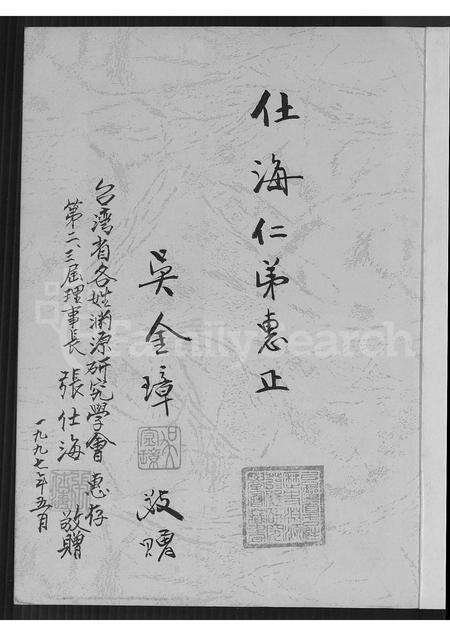 仕海仁弟惠正
吳金璋
敬贈
台湾省各姓渊源研究学會 惠存
第二、三屆理事長 張仕海 敬贈
一九九七年五月
FamilySearch